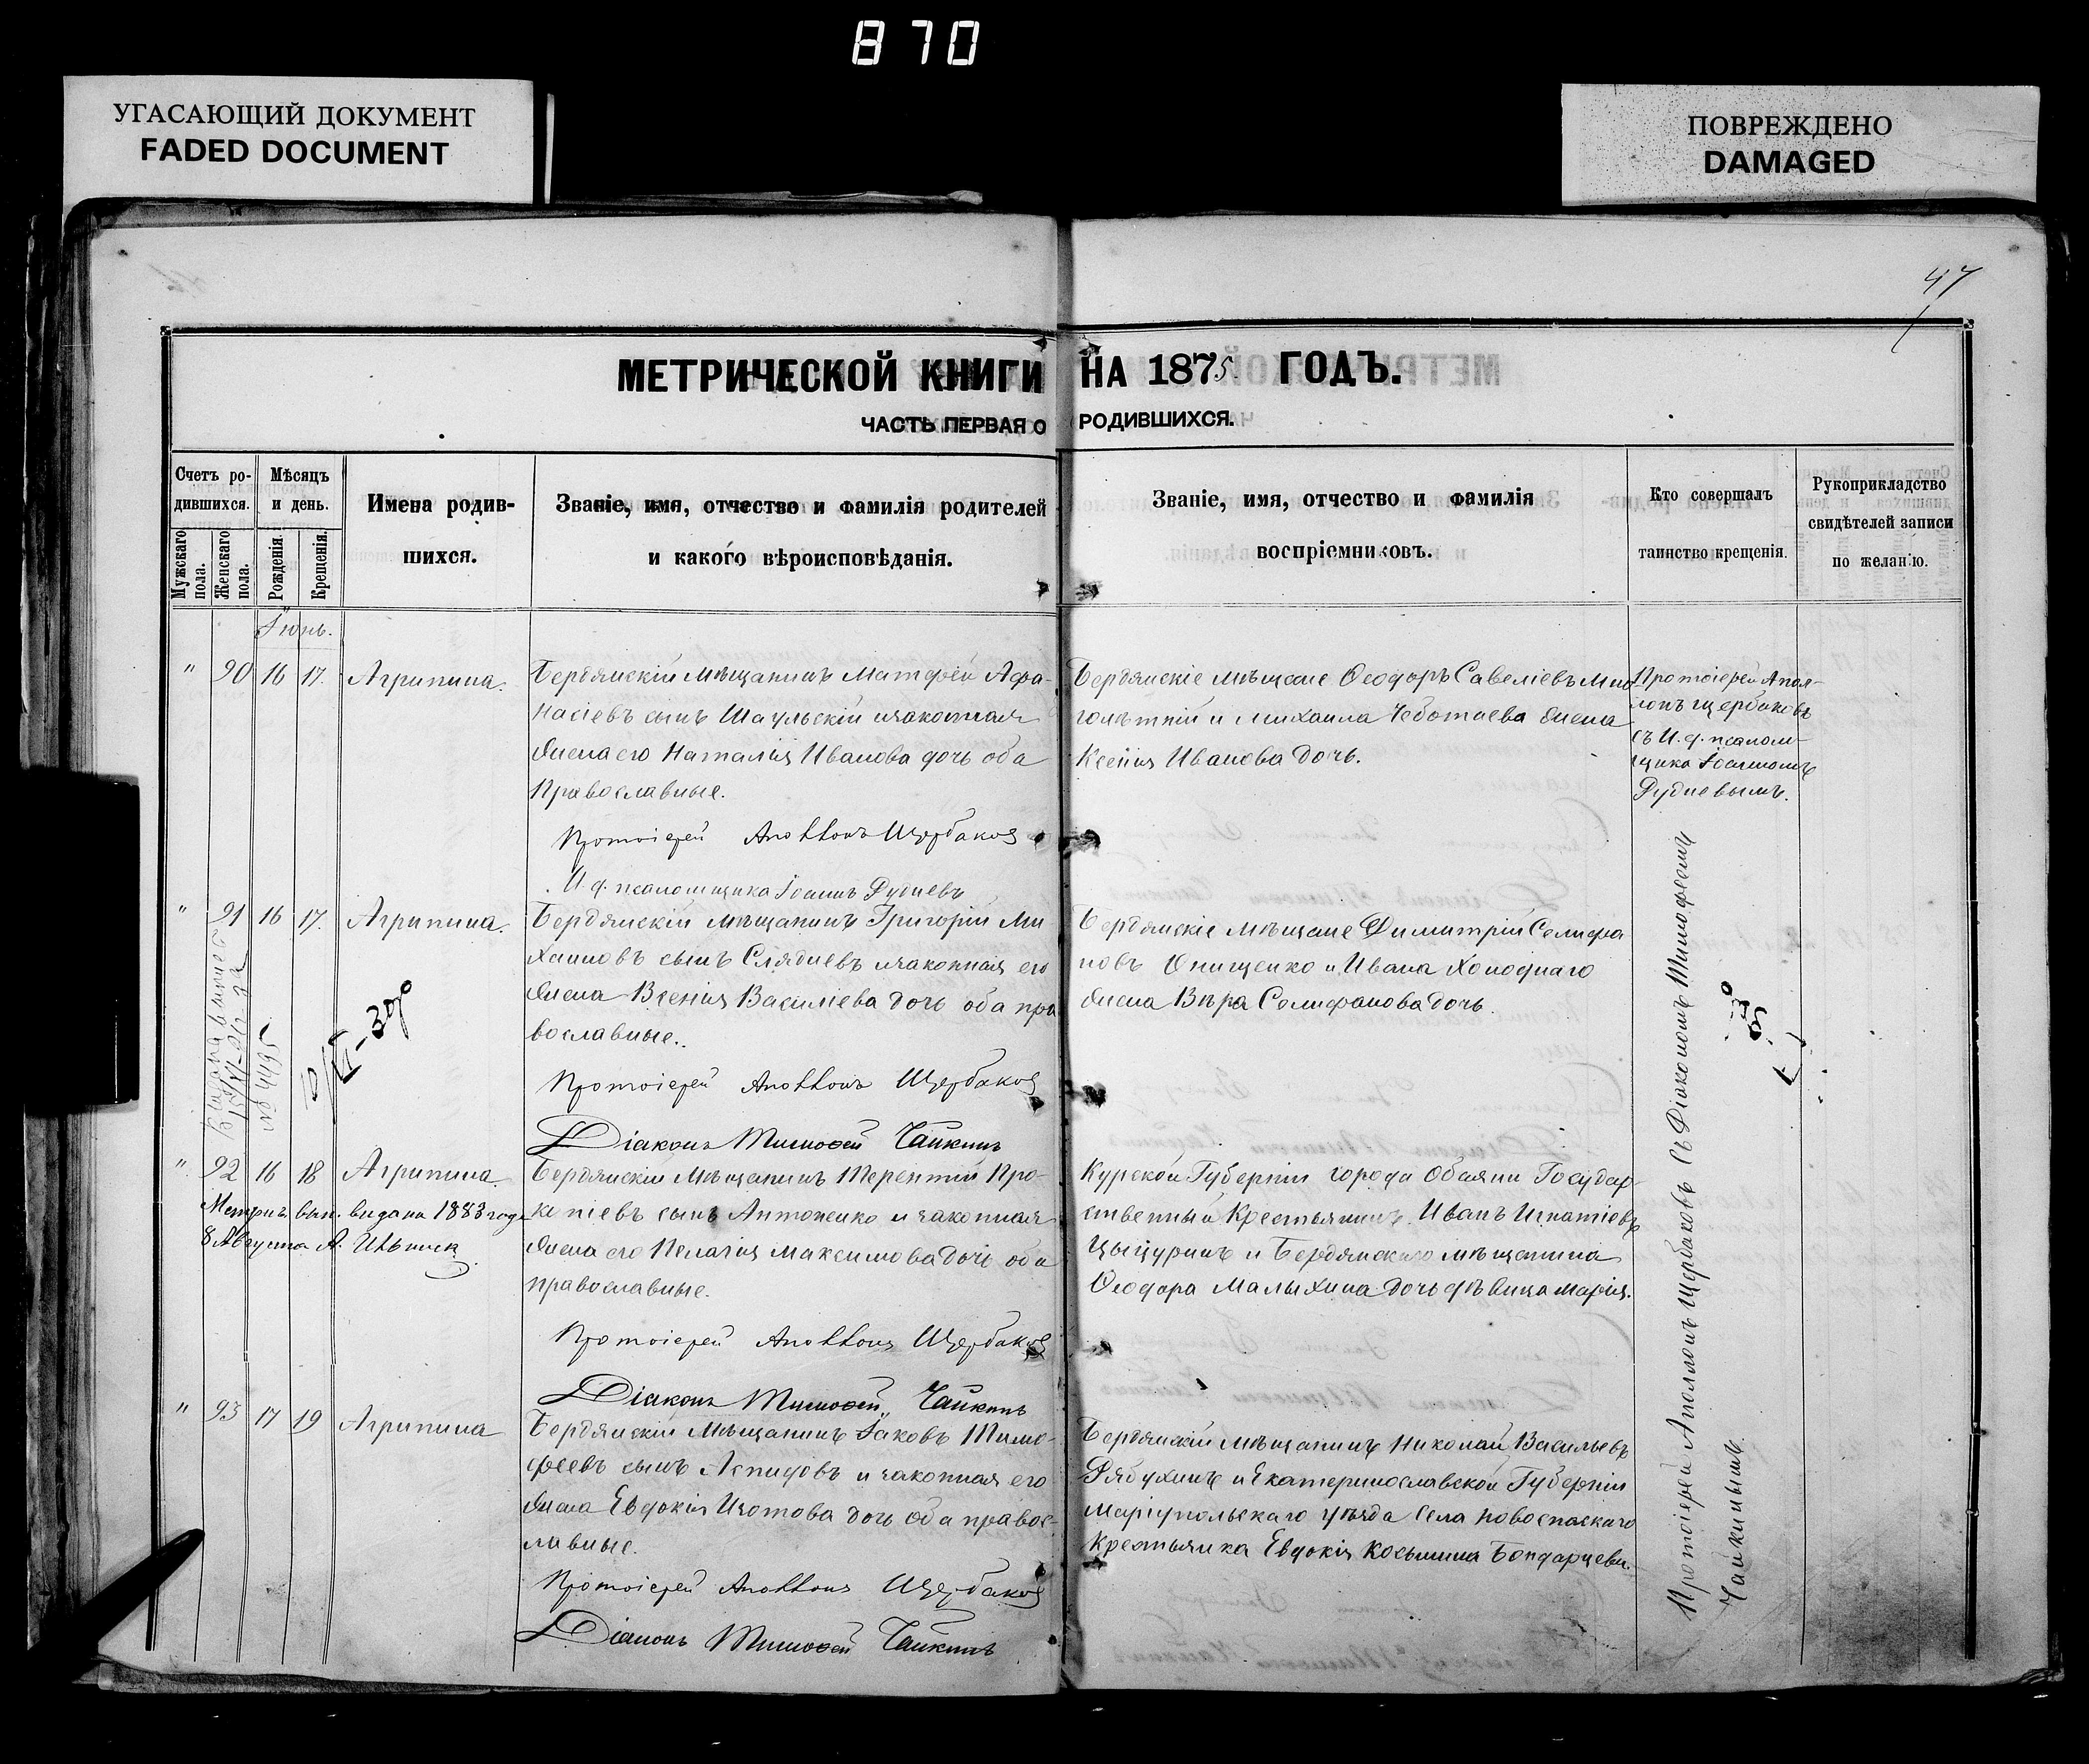 870
УГАСАЮЩИЙ ДОКУМЕНТ
FADED DOCUMENT
ПОВРЕЖДЕНО
DAMAGED
47
МЕТРИЧЕСКОЙ КНИГИ НА 1875 ГОДЪ.
ЧАСТЬ ПЕРВАЯ О РОДИВШИХСЯ.
Счетъ ро-
дившихся.
Мужскаго пола.
Женскаго пола.
Мѣсяцъ
и день.
Рожденія.
Крещенія.
Имена родив-
шихся.
Званіе, имя, отчество и фамилія родителей
и какого вѣроисповѣданія.
Званіе, имя, отчество и фамилія
воспріемниковъ.
Кто совершалъ
таинство крещенія.
Рукоприкладство
свидѣтелей записи
по желанію.
Іюнь.
" 90 16 17. Агрипина.
Бердянскій мѣщанинъ Матфей Афа-
насіевъ сынъ Шаульскій и законная
жена его Наталія Иванова дочь оба
Православные.
Протоіерей Аполлонъ Щербаковъ
И. д. псаломщика Іоаннъ Рудневъ
Бердянскіе мѣщане Ѳеодоръ Савеліевъ Мно
голѣтній и Михаила Чеботаева жена
Ксенія Иванова дочь.
Протоіерей Апол-
лонъ Щербаковъ
съ И. д. псалом-
щика Іоанномъ
Рудневымъ.
" 91 16 17. Агрипина.
Бердянскій мѣщанинъ Григорій Ми
хаиловъ сынъ Слядневъ и законная его
жена Ксенія Василіева дочь оба пра
вославные.
Протоіерей Аполлонъ Щербаковъ
Діаконъ Тимоѳей Чайкинъ
Бердянскіе мѣщане Димитрій Селифа
новъ Онищенко и Ивана Холоднаго
жена Вѣра Селифанова дочь.
№ 4495
" 92 16 18 Агрипина.
Метрич. вып. видана 1883 года
8 Августа А.
Бердянскій мѣщанинъ Терентій Про-
копіевъ сынъ Антоненко и законная
жена его Пелагія Максимова дочь оба
православные.
Протоіерей Аполлонъ Щербаковъ
Діаконъ Тимоѳей Чайкинъ
Курской Губерніи города Обаяни Государ-
ственный Крестьянинъ Иванъ Игнатіевъ
Цыцуринъ и Бердянскаго мѣщанина
Ѳеодора Малыхина дочь дѣвица Марія.
" 93 17 19 Агрипина
Бердянскій мѣщанинъ Іаковъ Тимо-
феевъ сынъ Аспидовъ и законная его
жена Евдокія Изотова дочь оба правос-
лавные.
Протоіерей Аполлонъ Щербаковъ
Діаконъ Тимоѳей Чайкинъ
Бердянскій мѣщанинъ Николай Васильевъ
Рябухинъ и Екатеринославской Губерніи
Маріупольскаго уѣзда села Новоспаскаго
крестьянка Евдокія Косьмина Бондарцева.
Протоіерей Аполлонъ Щербаковъ съ Діакономъ Тимофеемъ
Чайкинымъ.